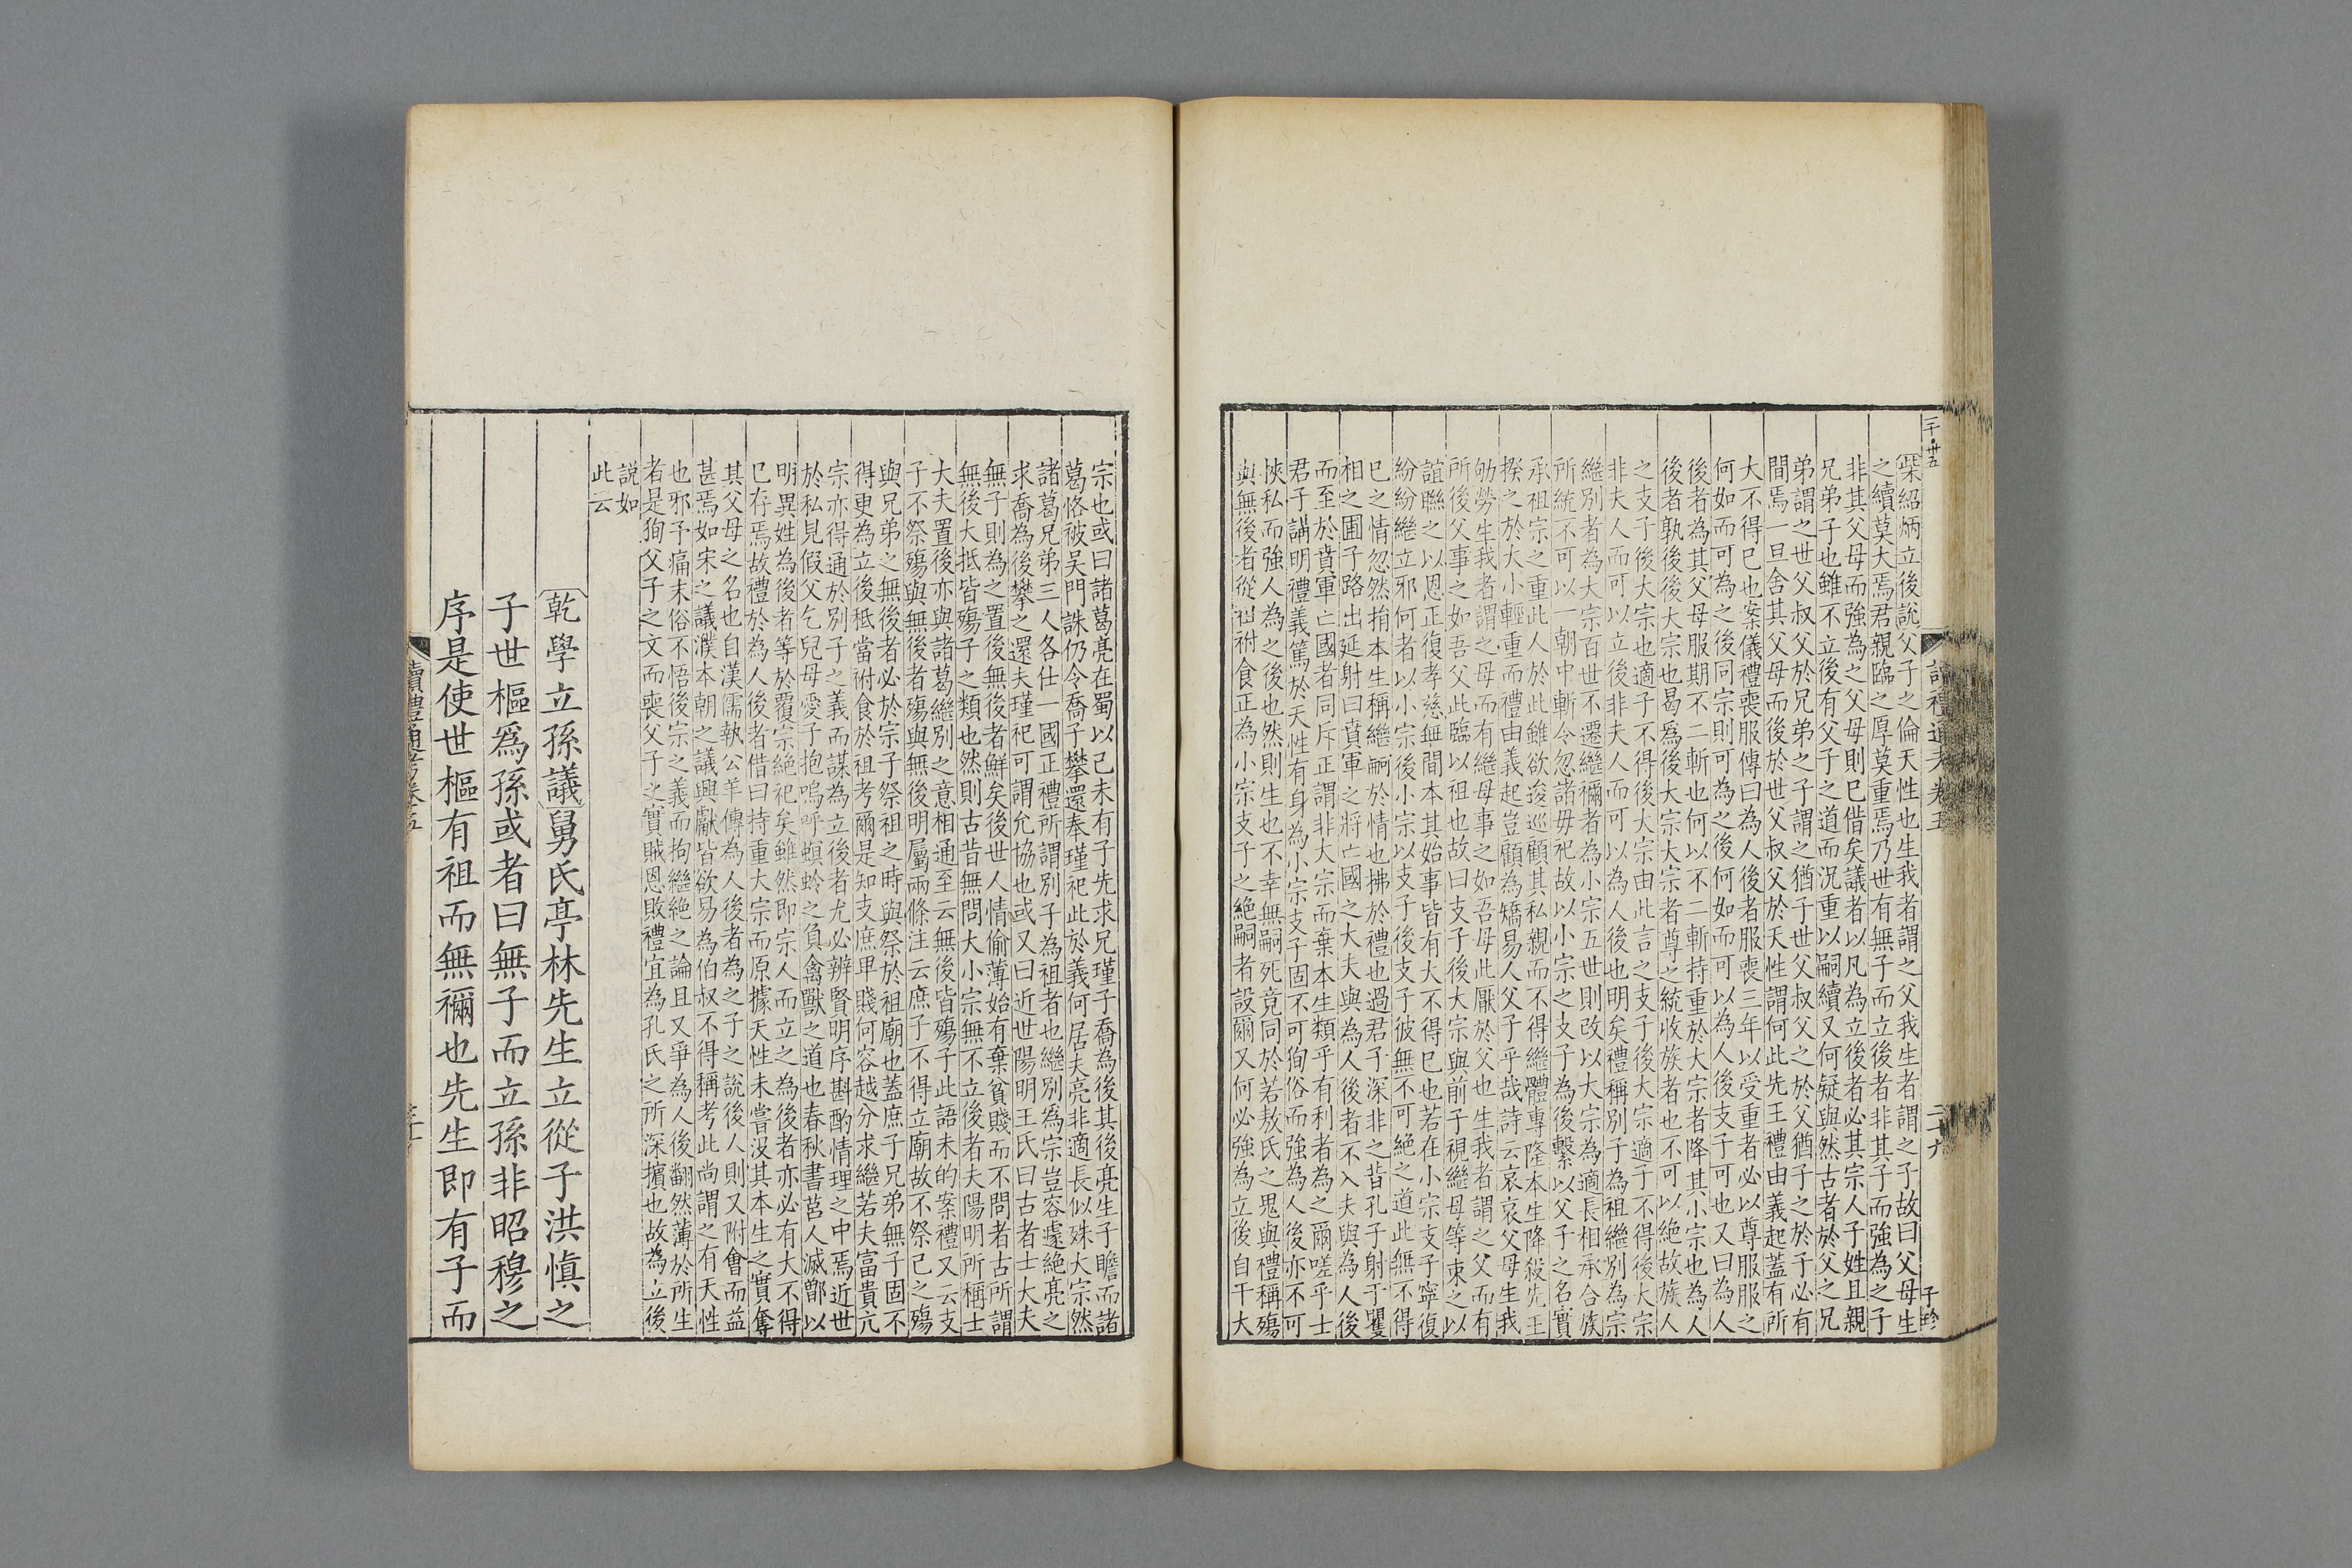 柴紹炳立後說父子之倫天性也生我者謂之父我生者謂之子故曰父母生
之續莫大焉君親臨之厚莫重焉乃世有無子而立後者非其子而強為之子
非其父母而強為之父母則已借矣議者以凡為立後者必其宗人子姓且親
兄弟子也雖不立後有父子之道而況重以嗣續又何疑與然古者於父之兄
弟謂之世父叔父於兄弟之子謂之猶子世父叔父之於父猶子之於子必有
間焉一旦舍其父母而後於世父叔父於天性謂何此先王禮由義起蓋有所
大不得已也案儀禮喪服傳曰為人後者服喪三年以受重者必以尊服服之
何如而可為之後同宗則可為之後何如而可以為人後支子可也又曰為人
後者為其父母服期不二斬也何以不二斬持重於大宗者降其小宗也為人
後者孰後後大宗也曷為後大宗大宗者尊之統收族者也不可以絕故族人
之支子後大宗也適子不得後大宗由此言之支子後大宗適子不得後大宗
非夫人而可以立後非夫人而可以為人後也明矣禮稱別子為祖繼別為宗
繼別者為大宗百世不遷繼禰者為小宗五世則改以大宗為適長相承合族
所統不可以一朝中斬令忽諸毋祀故以小宗之支子為後繫以父子之名實
承祖宗之重此人於此雖欲逡巡顧其私親而不得繼體專隆本生降殺先王
揆之於大小輕重而禮由義起豈顧為矯易人父子乎哉詩云哀哀父母生我
劬勞生我者謂之母而有繼母事之如吾母此厭於父也生我者謂之父而有
所後父事之如吾父此臨以祖也故曰支子後大宗與前子視繼母等束之以
誼聯之以恩正復孝慈無間本其始事皆有大不得已也若在小宗支子寧復
紛紛繼立邪何者以小宗後小宗以支子後支子彼無不可絕之道此無不得
已之情忽然捐本生稱繼嗣於情也拂於禮也過君子深非之昔孔子射于矍
相之圃子路出延射曰賁軍之將亡國之大夫與為人後者不入夫與為人後
而至於賁軍亡國者同斥正謂非大宗而棄本生類乎有利者為之爾嗟乎士
君子講明禮義篤於天性有身為小宗支子固不可徇俗而強為人後亦不可
悏私而強人為之後也然則生也不幸無嗣死竟同於若敖氏之鬼與禮稱殤
與無後者從祖祔食正為小宗支子之絕嗣者設爾又何必強為立後自干大
宗也或曰諸葛亮在蜀以己未有子先求兄瑾子喬為後其後亮生子瞻而諸
葛恪被吳門誅仍令喬子攀還奉瑾祀此於義何居夫亮非適長似殊大宗然
諸葛兄弟三人各仕一國正禮所謂別子為祖者也繼別爲宗豈容遽絕亮之
求喬為後攀之還夫瑾祀可謂允協也或又曰近世陽明王氏曰古者士大夫
無子則為之置後無後者鮮矣後世人情偷薄始有棄貧賤而不問者古所謂
無後大抵皆殤子之類也然則古昔無問大小宗無不立後者夫陽明所稱士
大夫置後亦與諸葛繼別之意相通至云無後皆殤子此語未的案禮又云支
子不祭殤與無後者殤與無後明屬兩條注云庶子不得立廟故不祭己之殤
與兄弟之無後者必於宗子祭祖之時與祭於祖廟也蓋庶子兄弟無子固不
得更為立後秪當祔食於祖考爾是知支庶卑賤何容越分求繼若夫富貴亢
宗亦得通於別子之義而謀為立後者尤必辨賢明序斟酌情理之中焉近世
於私見假父乞兒母愛子抱嗚呼螟蛉之負禽獸之道也春秋書莒人滅鄫以
明異姓為後者等於覆宗絕祀矣雖然即宗人而立之為後者亦必有大不得
已存焉故禮於為人後者借曰持重大宗而原據天性未嘗沒其本生之實奪
其父母之名也自漢儒執公羊傳為人後者為之子之說後人則又附會而益
甚焉如宋之議濮本朝之議興獻皆欲易為伯叔不得稱考此尚謂之有天性
也邪予痛末俗不悟後宗之義而拘繼絕之論且又爭為人後翻然薄於所生
者是狥父子之文而喪父子之實賊恩敗禮宜為孔氏之所深擯也故為立後
說如
此云
乾學立孫議舅氏亭林先生立從子洪愼之
子世樞爲孫或者曰無子而立孫非昭穆之
序是使世樞有祖而無禰也先生即有子而